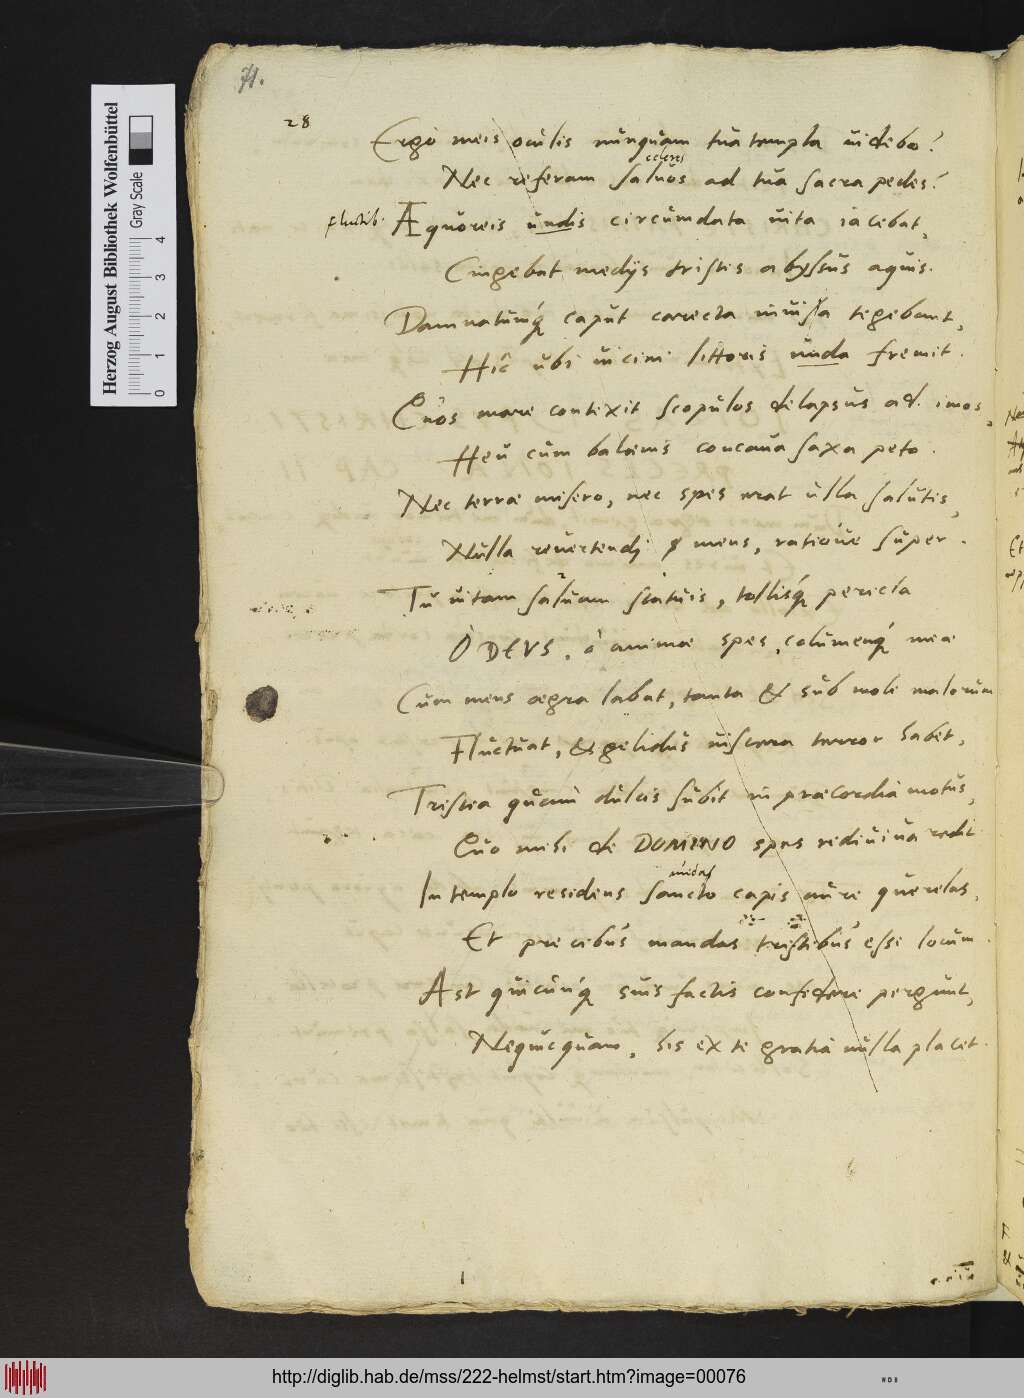 71.
28
Ergò meis oculis nunquam tua templa uidebo?
celeres
Nec referam saluos ad tua sacra pedes?
fluctib.
Æquoreis undis circumdata uita iacebat,
Cingebat medijs tristis abyssus aquis.
Damnatumq́ caput carecta inuisa tegebant,
Hîc ubi uicini littoris unda fremit.
Quos mare contexit scopulos delapsus ad imos,
Heu cum balænis concaua saxa peto.
Nec terræ misero, nec spes erat ulla salutis,
Nulla reuertendj mens, ratioúe super.
Tu uitam saluam statuis, tollisq́ pericla
Ô DEVS, ô animæ spes, columenq́ meæ
Cum mens ægra labat, tanta & sub mole malorum
Fluctuat, & gelidus uiscera terror habet,
Tristia quàm dulcis subit in præcordia motus,
Quo mihi de DOMINO spes rediuiua redit
In templo residens sancto capis aure querelas,
Et precibus mandas tristibus esse locum.
Ast quicunq́ suis factis confidere pergunt,
Nequicquam, his ex te gratia nulla placet.
Herzog August Bibliothek Wolfenbüttel
Gray Scale
0 1 2 3 4
http://diglib.hab.de/mss/222-helmst/start.htm?image=00076